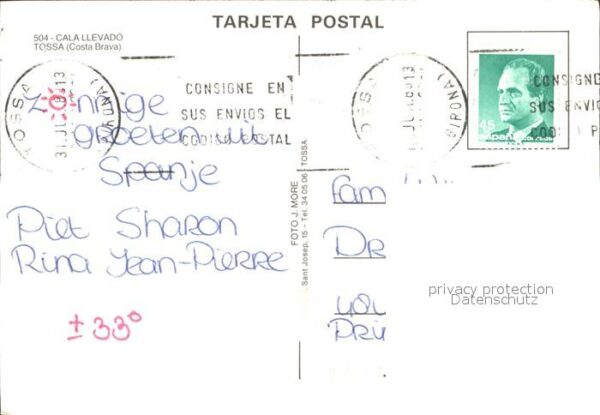 TARJETA POSTAL
504 - CALA LLEVADÓ
TOSSA (Costa Brava)
TOSSA
31 JUL
13
(GIRONA)
CONSIGNE EN
SUS ENVIOS EL
CODIGO POSTAL
Zonnige
groeten uit
Spanje
Piet Sharon
Rina Jean-Pierre
± 33°
FOTO J. MORE
Sant Josep, 15 - Tel. 34 05 06 TOSSA
TOSSA
31 JUL
13
(GIRONA)
CONSIGNE
SUS ENVIO
CODI P
45
España
Fam
DR
privacy protection
Datenschutz